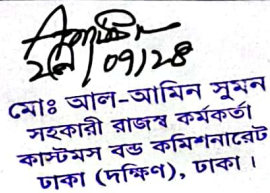 ০১/০৭/২৪
মোঃ আল-আমিন সুমন
সহকারী রাজস্ব কর্মকর্তা
কাস্টমস বন্ড কমিশনারেট
ঢাকা (দক্ষিণ), ঢাকা।